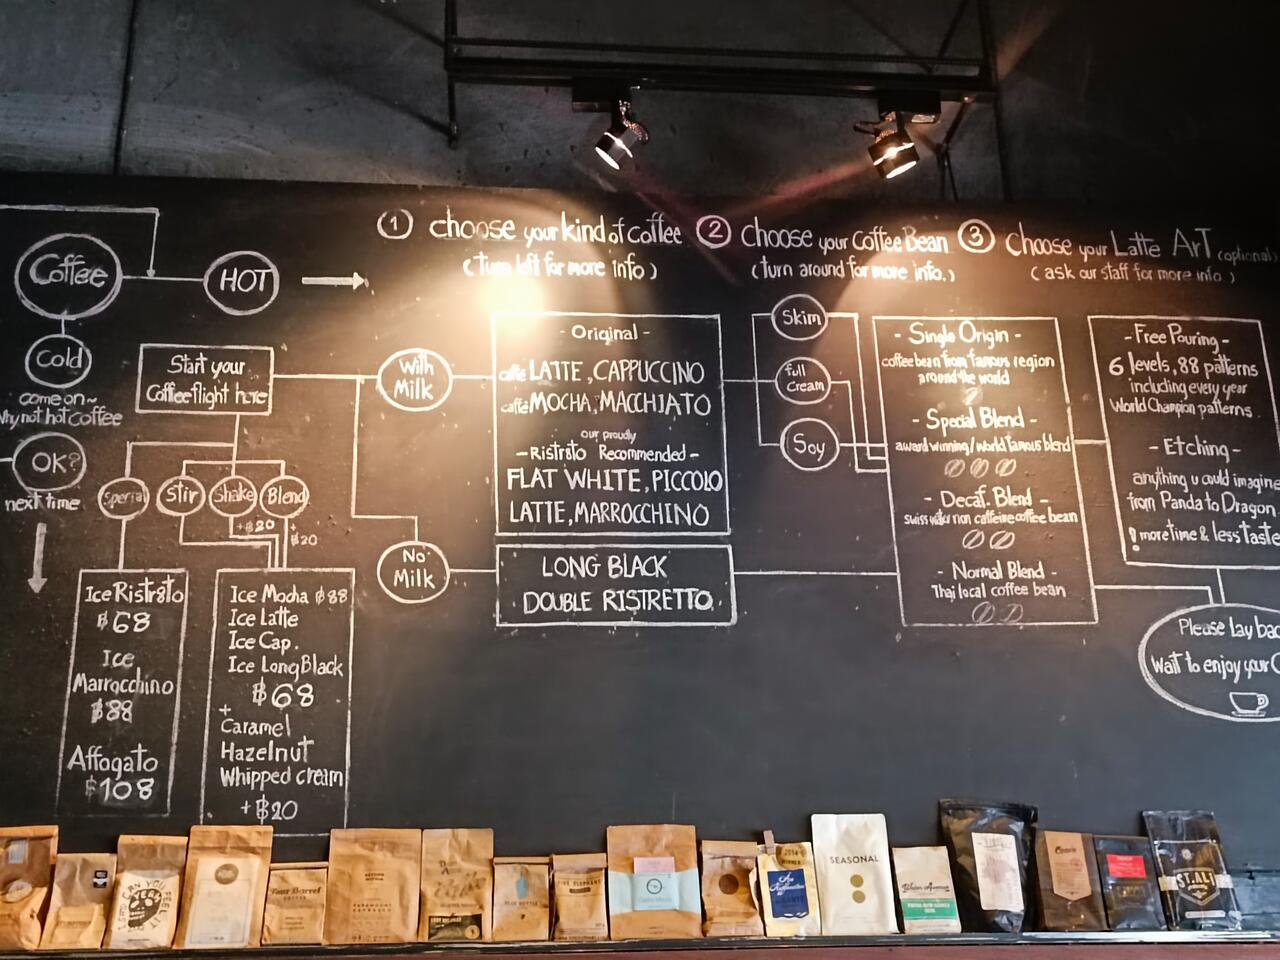 Coffee
HOT
Cold
come on~
Why not hot coffee
OK?
next time
Start your
Coffee flight here
Special
Stir
Shake
Blend
+฿20
+
฿20
Ice Ristr8to
฿68
Ice
Marrocchino
฿88
Affogato
฿108
Ice Mocha ฿88
Ice Latte
Ice Cap.
Ice Long Black
฿68
+
Caramel
Hazelnut
Whipped cream
+฿20
① choose your kind of Coffee
(turn left for more info)
With
Milk
No
Milk
- Original -
caffé LATTE, CAPPUCCINO
caffé MOCHA, MACCHIATO
our proudly
- Ristr8to Recommended -
FLAT WHITE, PICCOLO
LATTE, MARROCCHINO
LONG BLACK
DOUBLE RISTRETTO
② choose your Coffee Bean
(turn around for more info.)
Skim
full
Cream
Soy
- Single Origin -
coffee bean from famous region
around the world
- Special Blend -
award winning/world famous blend
- Decaf. Blend -
swiss water non caffeine coffee bean
- Normal Blend -
Thai local coffee bean
③ choose your Latte ArT (optional)
(ask our staff for more info.)
- Free Pouring -
6 levels, 88 patterns
including every year
World Champion patterns.
- Etching -
anything u could imagine
from Panda to Dragon
! more time & less taste
Please lay bac
wait to enjoy your C
CAN YOU FEEL
Four Barrel
COFFEE
PARAMOUNT
ESPRESSO
BLUE BOTTLE
FIVE ELEPHANT
2014
WINNER
SEASONAL
ST.ALi